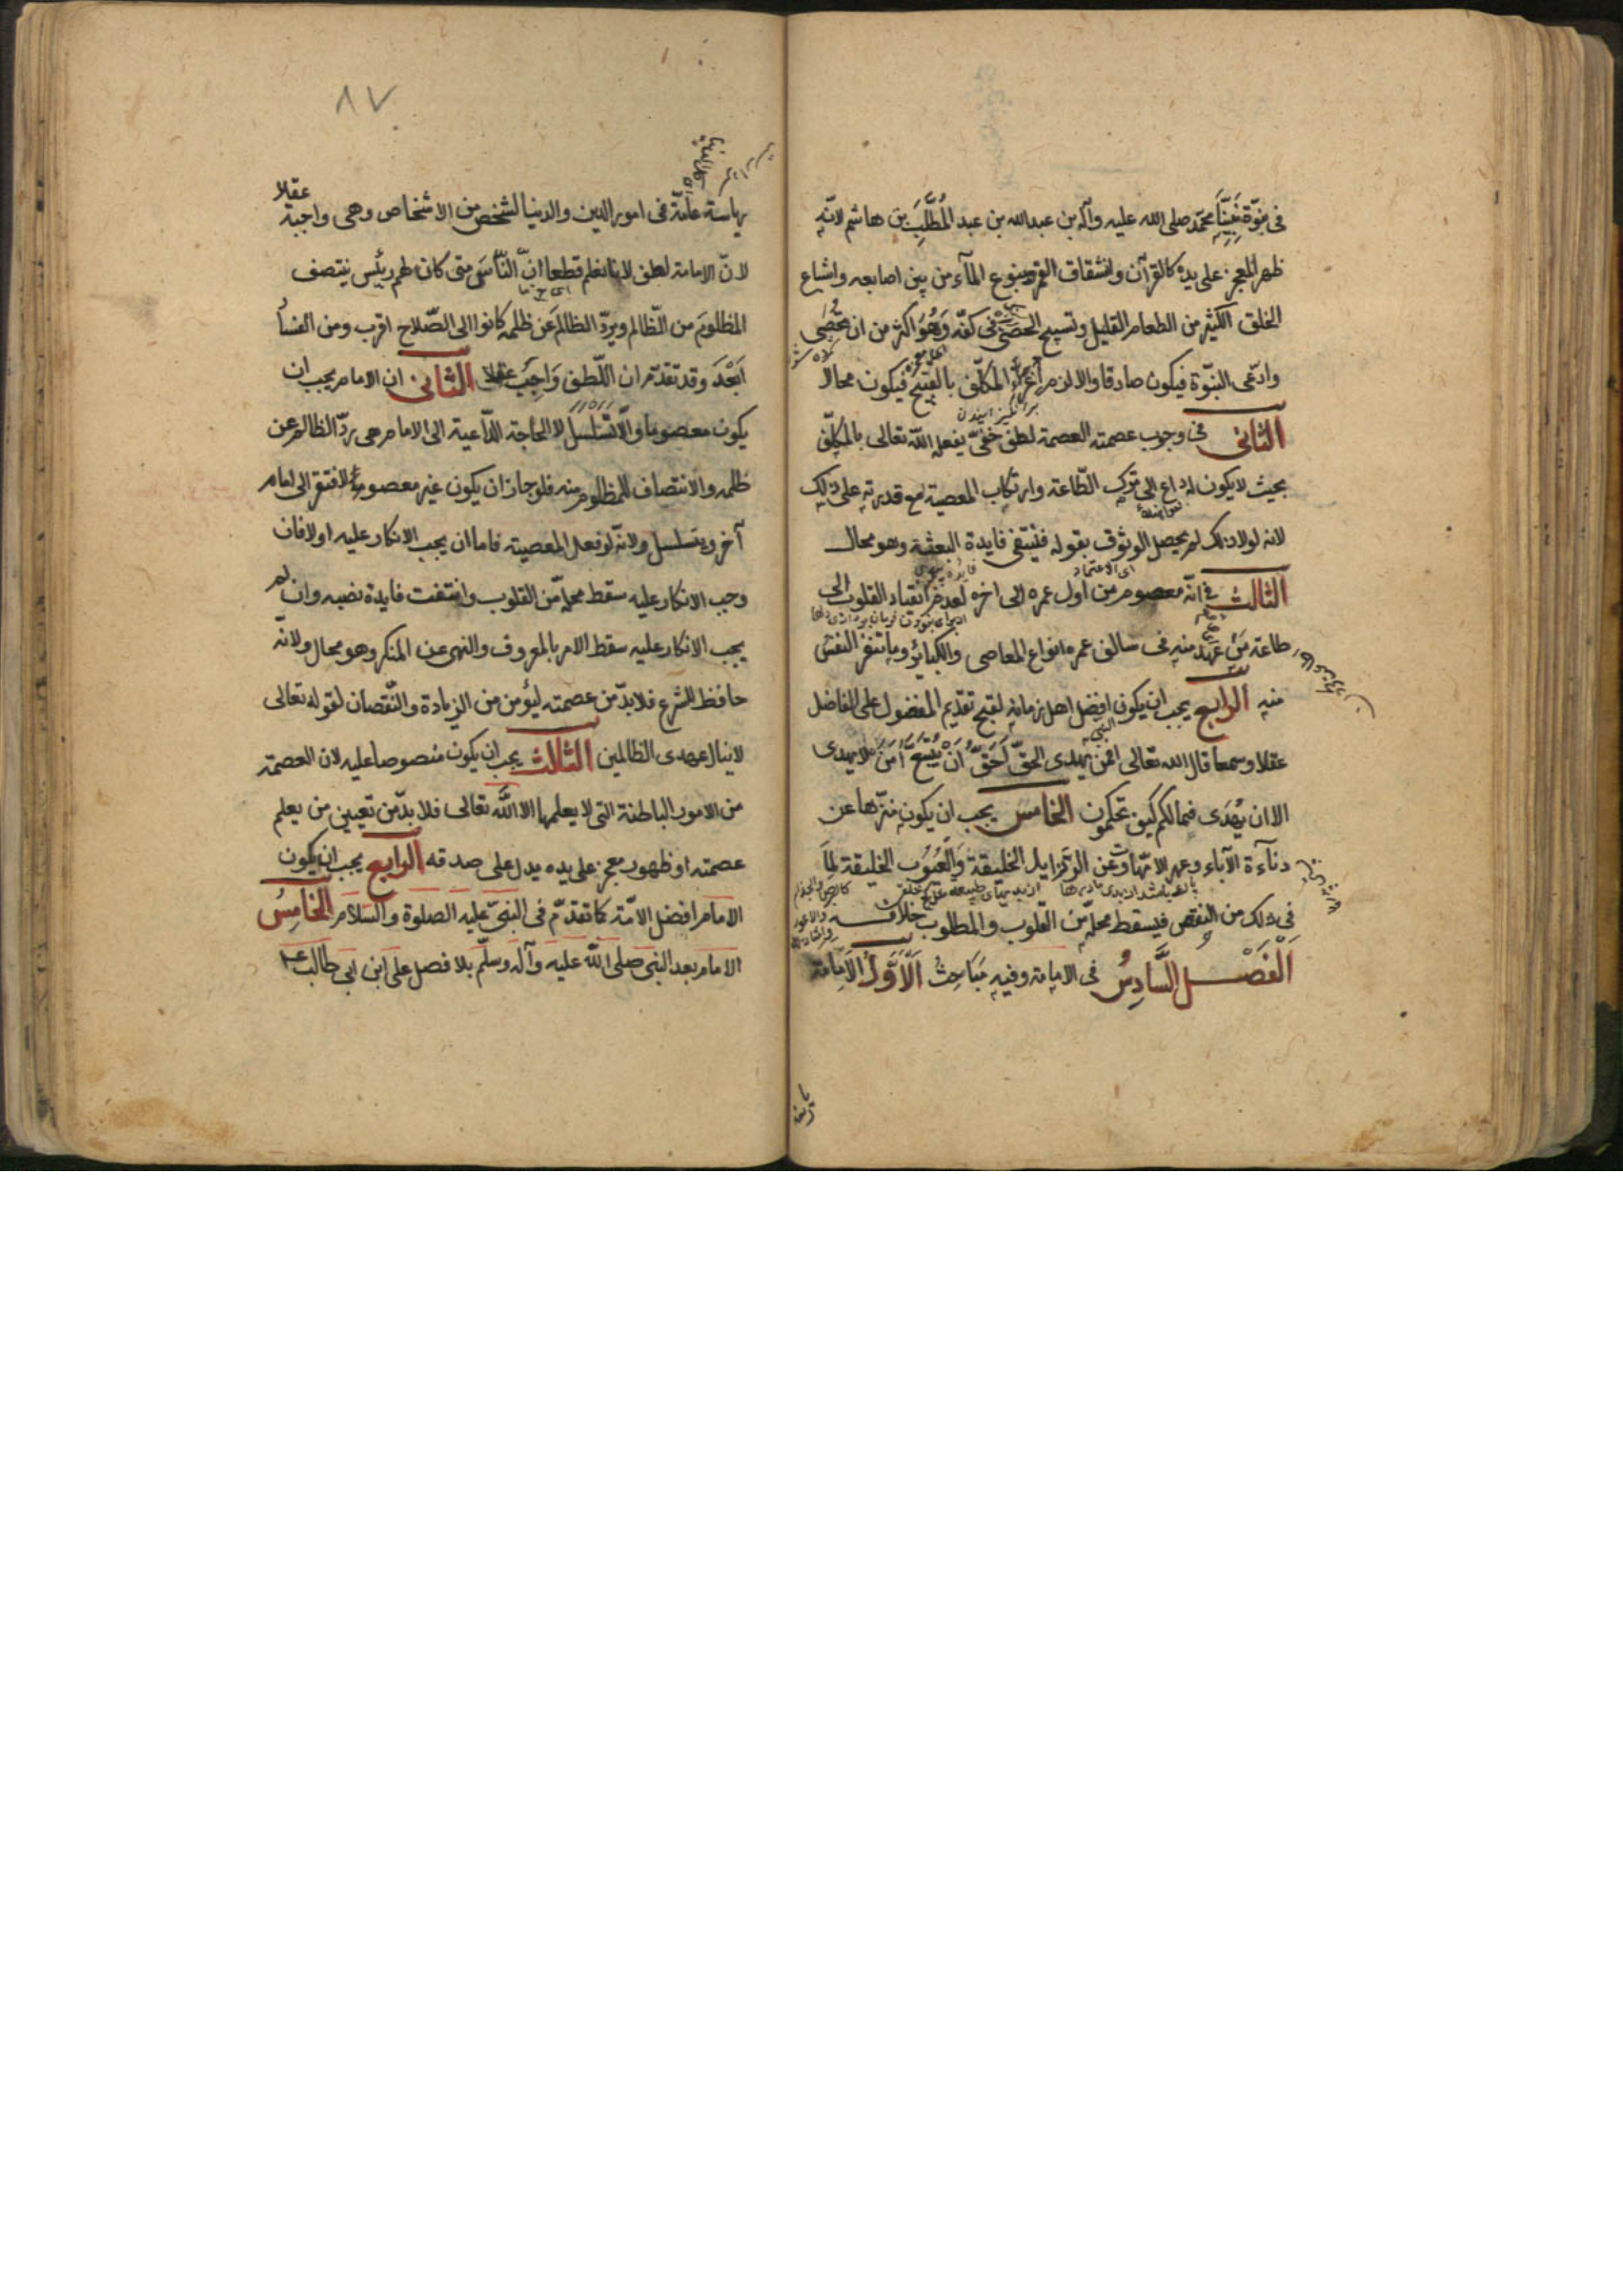 فى نبوّة نبيّنا محمّد صلى الله عليه وآله بن عبدالله بن عبد المُطَّلِبَ بن هاشم لانّه
ظهر المعجز على يده كالقرآن وانشقاق القمر وينبوع المآء من بين اصابعه واشباع
الخلق الكثير من الطعام القليل وتسبيح الحصى فى كفّه وَهُوَ اكثر من ان تُحْصٰى
وادّعى النبّوة فيكون صادقا والا لزم اغراء المكلّف بالقبيح فيكون محالا
الثانى فى وجوب عصمته العصمة لطف خفىّ يفعله الله تعالى بالمكلّف
بحيث لا يكون له داع الى ترك الطّاعة وارتكاب المعصية مع قدرته على ذلك
لانه لولا ذلك لم يحصل الوثوق بقوله فتنتفى فايدة البعثة وهو محال
اى الاعتماد
الثالث فى انّه معصوم من اول عمره الى اخره لعدم انقياد القلوب الى
طاعة مَن عهد منه فى سالف عمره انواع المعاصى والكبائر وما تنفر النفس
منه الرابع يجب ان يكون افضل اهل زمانه لقبح تقديم المفضول على الفاضل
عقلا وسمعا قال الله تعالى افمن يهدى الى الحقّ اَحَقُّ اَنْ يُتَّبَعَ اَمَّنْ لا يهدى
الا ان يُهْدَى فمالكم كيف تحكمون الخامس يجب ان يكون منزّها عن
دنآءة الآباء وعهر الامّهات وعن الرزايل الخليقة وَالْعُيُوب الخليقة لِمَا
فى ذلك من النقص فيسقط محلّه من القلوب والمطلوب خلافه
اَلْفَصْل السَّادِسُ فى الامامة وفيه مَبَاحِثُ اَلْاَوَّلُ الْاِمَامَة
٨٧
رياسة عامّة فى امور الدين والدنيا لشخص من الاشخاص وهى واجبة عقلا
لانّ الامامة لطف لاننا نعلم قطعا انّ النّاسَ متى كان لهم رئيس ينتصف
المظلومَ من الظّالم ويردّ الظالمَ عَن ظلمه كانوا الى الصّلاح اقرب ومن الفساد
اَبْعَدَ وقد تقدّم ان اللّطف وَاجِبٌ عقلا الثانى ان الامام يجب ان
يكون معصوما والّا تسلسل لان الحاجة الدّاعية الى الامام هى ردّ الظالم عن
ظلمه والانتصاف للمظلوم منه فلو جاز ان يكون غير معصوم لافتقر الى امام
آخر ويتسلسل ولانّه لو فعل المعصية فاما ان يجب الانكار عليه اولا فان
وجب الانكار عليه سقط محلّه من القلوب وانتفت فايدة نصبه وان لم
يجب الانكار عليه سقط الامر بالمعروف والنهى عن المنكر وهو محال ولانّه
حافظ للشرع فلا بدّ من عصمته ليؤمن من الزيادة والنّقصان لقوله تعالى
لا ينال عهدى الظالمين الثالث يجب ان يكون منصوصا عليه لان العصمة
من الامور الباطنة التى لا يعلمها الا اللّٰه تعالى فلا بدّ من تعيين من يعلم
عصمته او ظهور معجز على يده يدل على صدقه الرابع يجب ان يكون
الامام افضل الامّة كما تقدّم فى النبىّ عليه الصلوة والسلام الخامِسُ
الامام بعد النبى صلى اللّه عليه وآله وسلّم بلا فصل على ابن ابى طالب